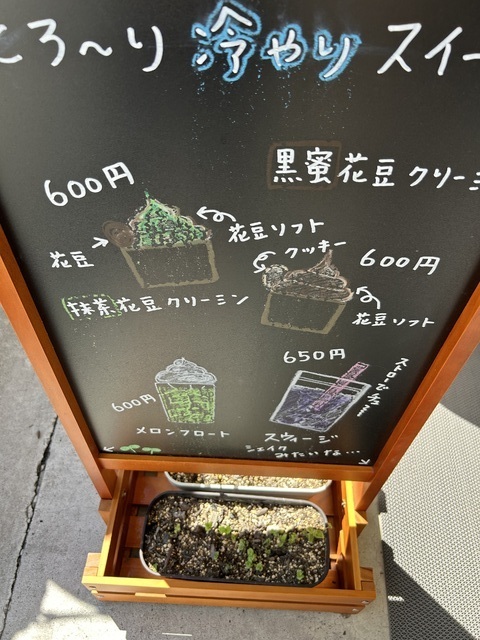 ころ～り 冷やり スイー
黒蜜花豆クリーミ
600円
花豆ソフト
花豆
抹茶花豆クリーミン
クッキー
600円
花豆ソフト
600円
メロンフロート
650円
ストローでチュー
スヴィージ
シェイクみたいな…